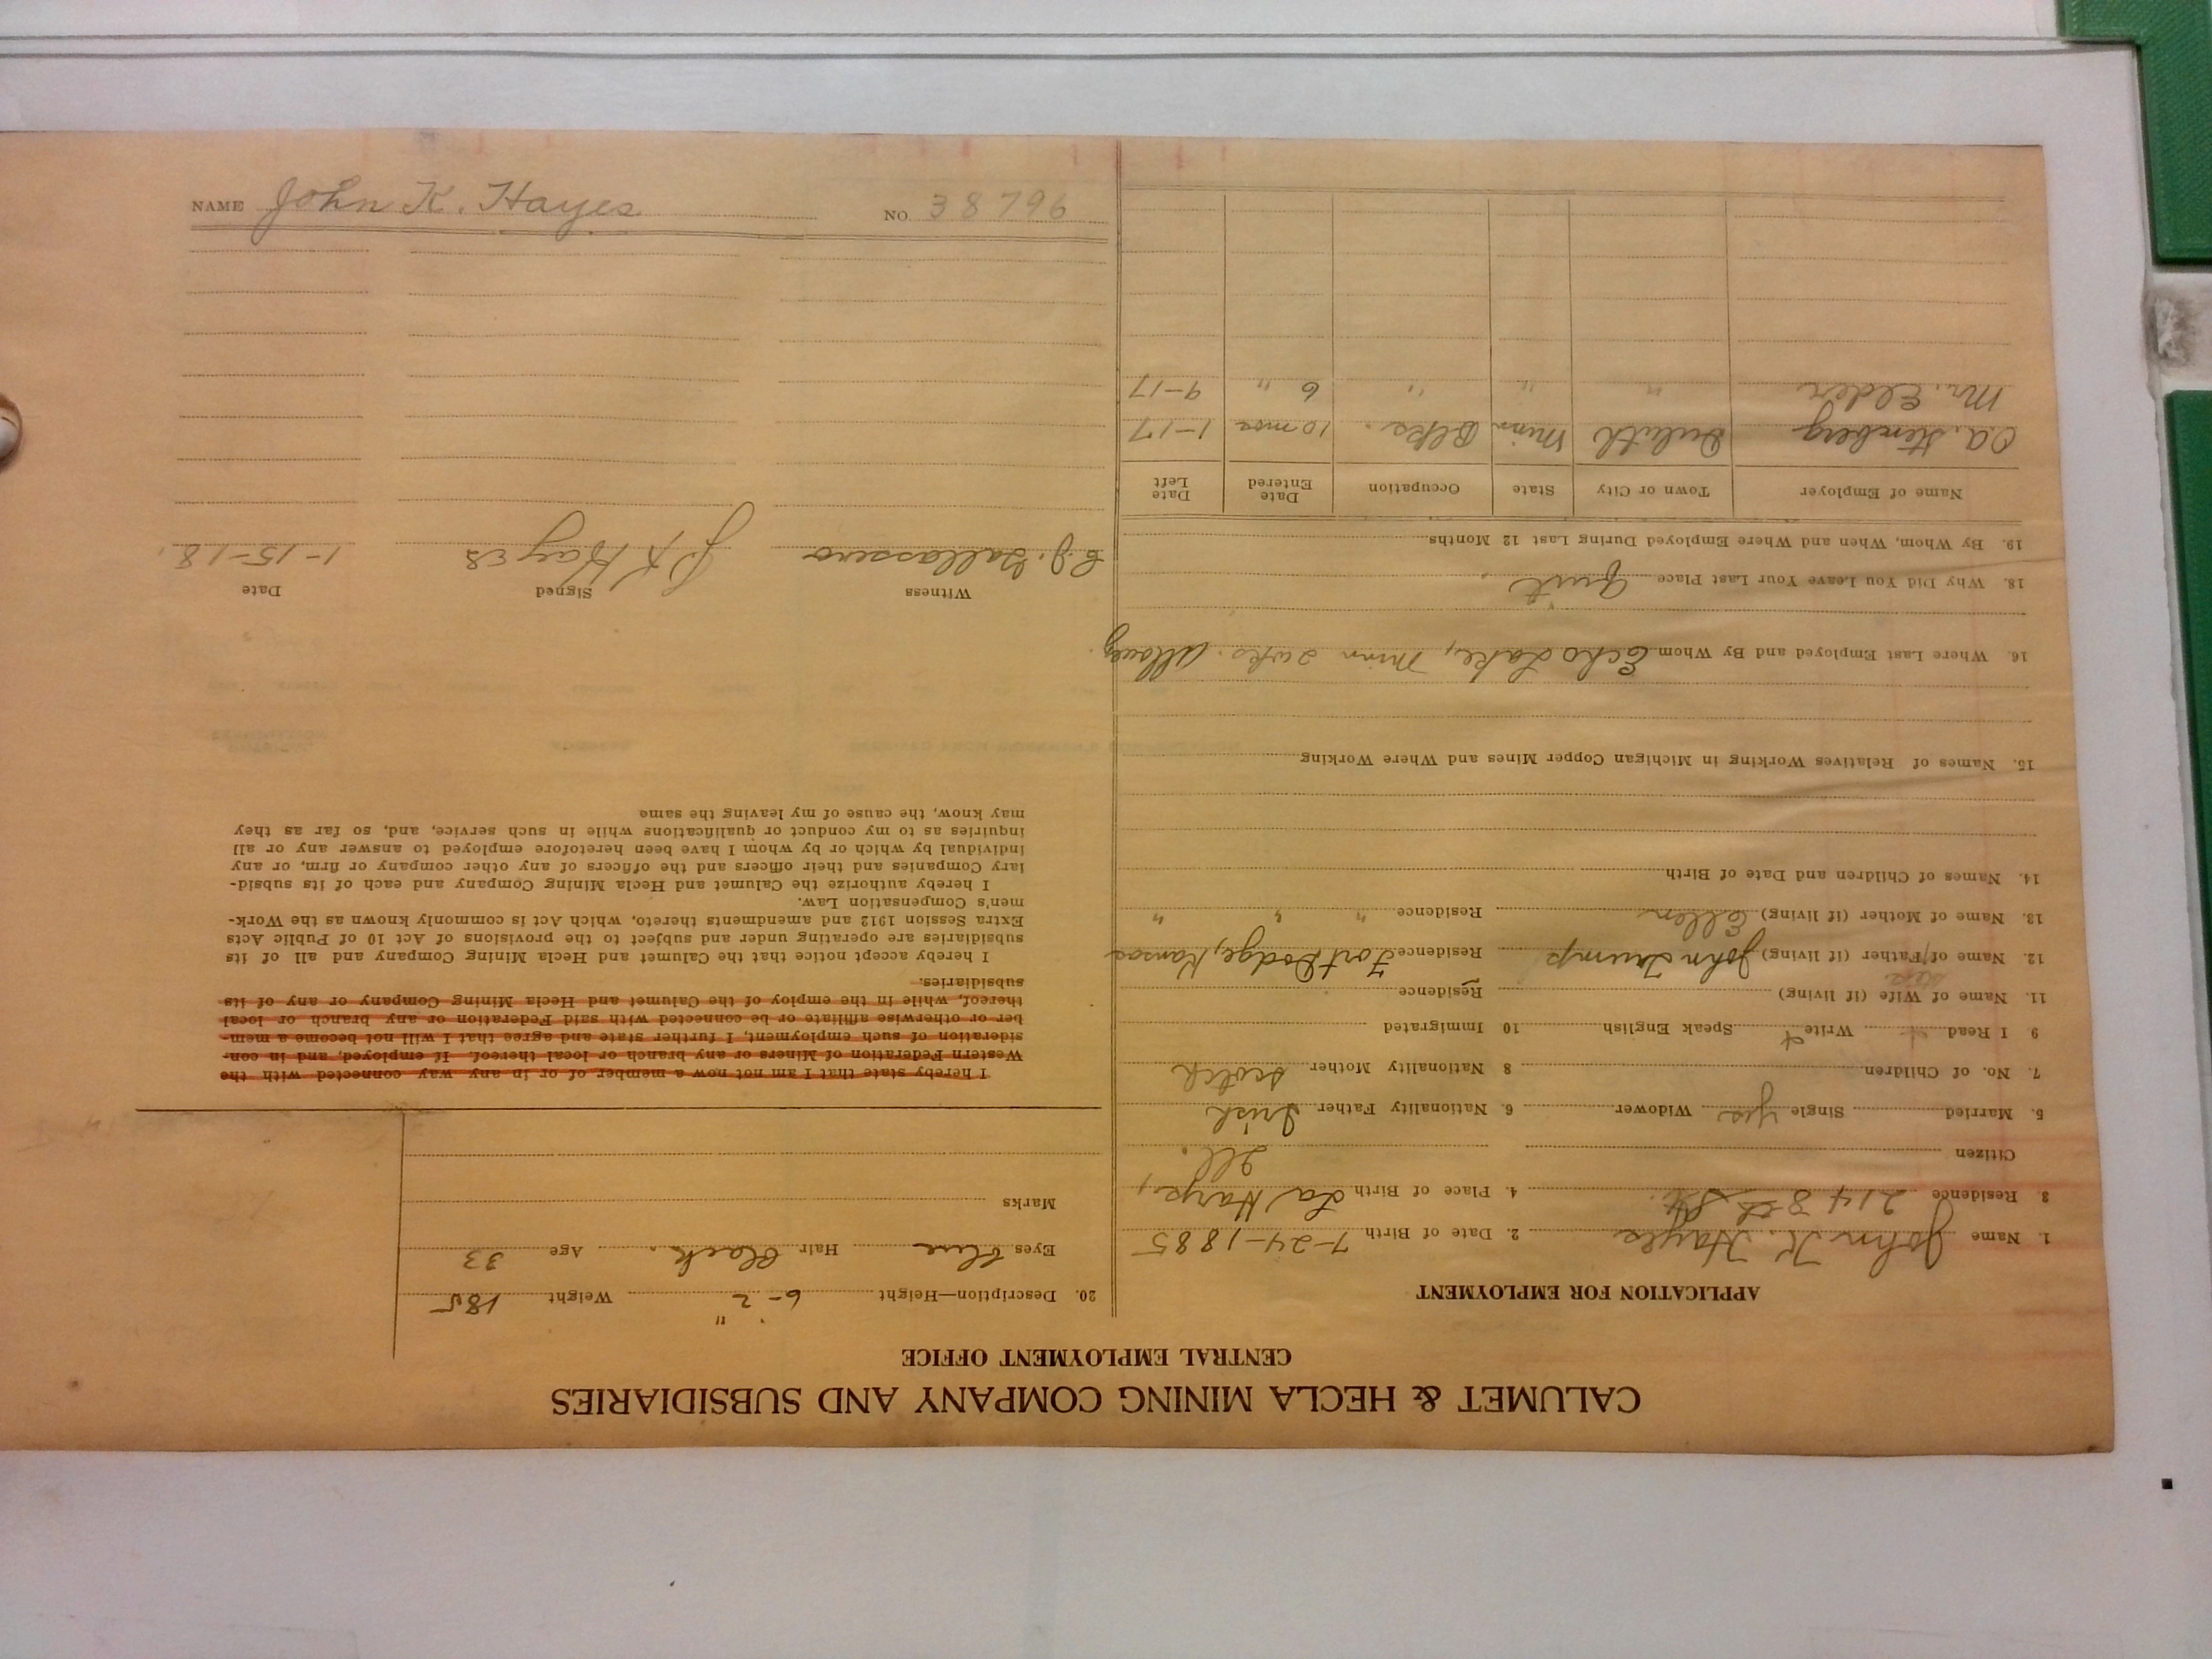 CALUMET & HECLA MINING COMPANY AND SUBSIDIARIES
CENTRAL EMPLOYMENT OFFICE
APPLICATION FOR EMPLOYMENT
1. Name John K. Hayes 2. Date of Birth 7-24-1885
3 Residence 214 8th St. 4. Place of Birth La Harpe,
Citizen Ill.
5. Married Single yes Widower 6. Nationality Father Irish
7. No. of Children 8 Nationality Mother Scotch
9 I Read Write Speak English 10 Immigrated
11. Name of Wife (if living) Residence
step
12. Name of Father (if living) John Trump Residence Fort Dodge, Kansas
13. Name of Mother (if living) Ellen Residence " " "
14. Names of Children and Date of Birth
15. Names of Relatives Working in Michigan Copper Mines and Where Working
16. Where Last Employed and By Whom Echo Lake, Minn
18. Why Did You Leave Your Last Place Quit.
19. By Whom, When and Where Employed During Last 12 Months
Name of Employer Town or City State Occupation Date Entered Date Left
O.A. Stenberg Duluth Minn Blks. 10 mos 1-17
Mr. Elder " " " 6 " 9-17
20. Description—Height 6-2" Weight 185
Eyes blue Hair Black. Age 33
Marks
I hereby state that I am not now a member of or in any way connected with the
Western Federation of Miners or any branch or local thereof. If employed, and in con-
sideration of such employment, I further state and agree that I will not become a mem-
ber or otherwise affiliate or be connected with said Federation or any branch or local
thereof, while in the employ of the Calumet and Hecla Mining Company or any of its
subsidiaries.
I hereby accept notice that the Calumet and Hecla Mining Company and all of its
subsidiaries are operating under and subject to the provisions of Act 10 of Public Acts
Extra Session 1912 and amendments thereto, which Act is commonly known as the Work-
men's Compensation Law.
I hereby authorize the Calumet and Hecla Mining Company and each of its subsid-
iary Companies and their officers and the officers of any other company or firm, or any
individual by which or by whom I have been heretofore employed to answer any or all
inquiries as to my conduct or qualifications while in such service, and, so far as they
may know, the cause of my leaving the same
Witness Signed Date
J K Hayes 1-15-18.
NAME John K. Hayes NO. 38796